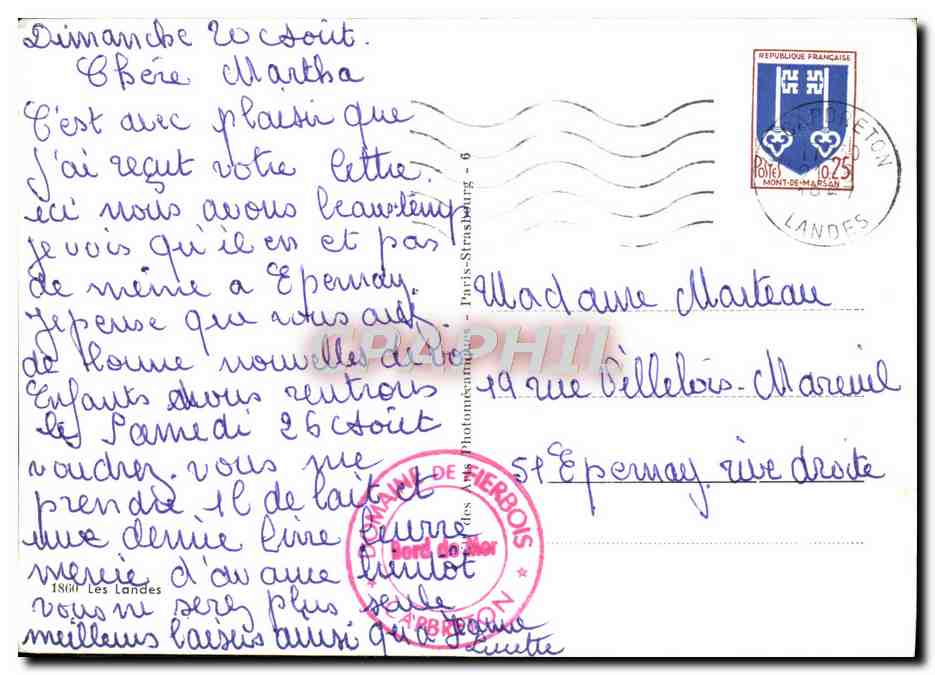 Dimanche 20 Août.
Chère Martha
C'est avec plaisir que
j'ai reçut votre lettre.
ici nous avons beau temp
je vois qu'il en et pas
de même a Epernay.
Je pense que vous avez
de bonne nouvelles de vo
Enfants nous rentrons
le Samedi 26 Août
voudrez-vous me
prendre 1l de lait et
une demie livre beurre
mercie d'avance bientôt
vous ne serez plus seule
meilleurs baisers ainsi qu'à Jeanne
Lucette
1860 Les Landes
des Arts Photomécaniques - Paris-Strasbourg - 6
REPUBLIQUE FRANÇAISE
POSTES 0.25
MONT-DE-MARSAN
CAPBRETON
LANDES
Madame Marteau
19 rue Villebois-Mareuil
51 Epernay rive droite
DOMAINE DE FIERBOIS
Bord de Mer
* CAPBRETON *
CPAPHIL